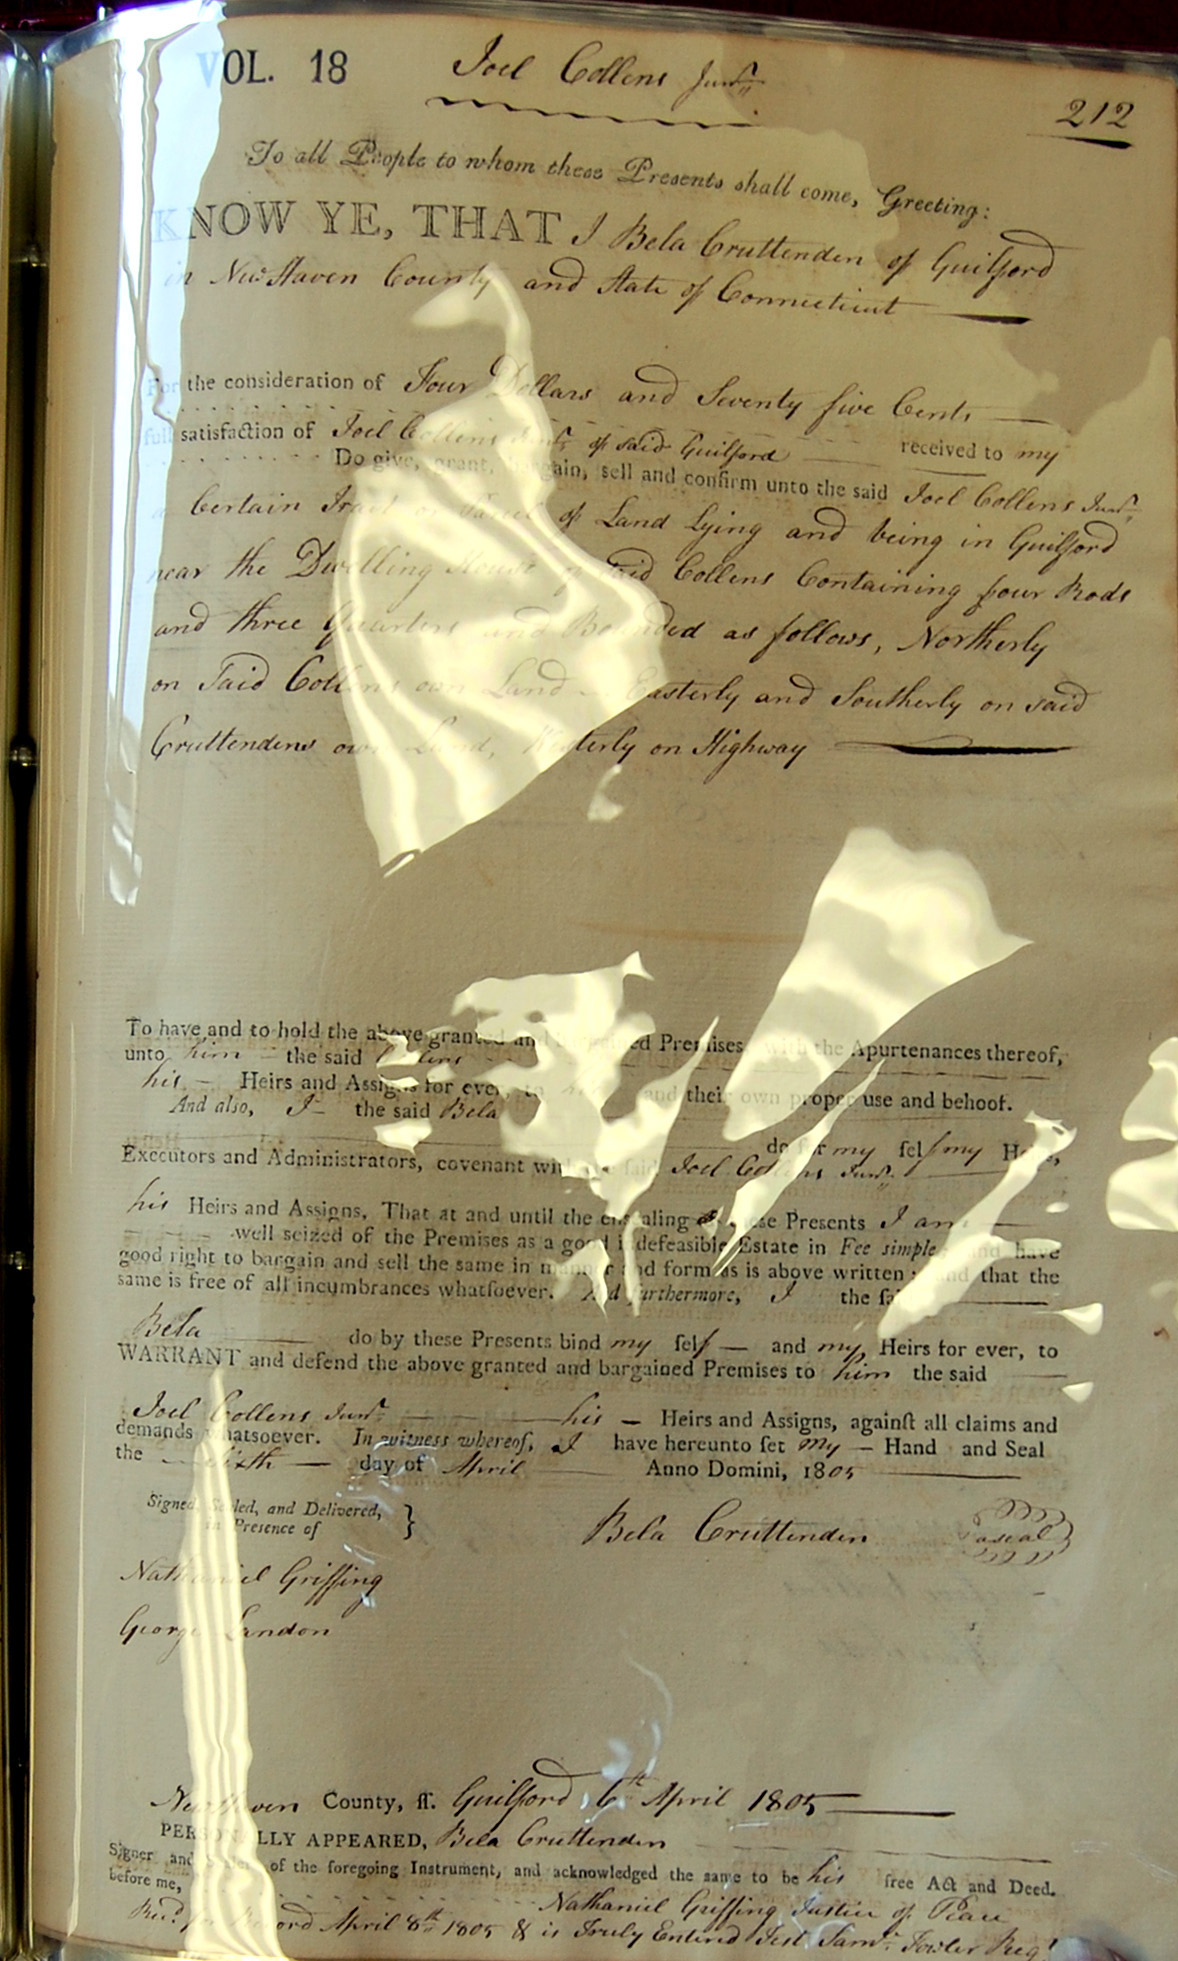 VOL. 18 Joel Collens Junr.
212
To all People to whom these Presents shall come, Greeting:
KNOW YE, THAT I Bela Cruttenden of Guilford
in New Haven County and State of Connecticut
For the consideration of Four Dollars and Seventy five Cents
full satisfaction of Joel Collens Junr. of said Guilford received to my
Do give, grant, bargain, sell and confirm unto the said Joel Collens Junr.
a Certain Tract or Parcel of Land Lying and being in Guilford
near the Dwelling House of said Collens Containing four Rods
and three Quarters and Bounded as follows, Northerly
on Said Collens own Land - Easterly and Southerly on said
Cruttendens own Land, Westerly on Highway
To have and to hold the above granted and bargained Premises, with the Apurtenances thereof,
unto him the said Collens
his Heirs and Assigns for ever, to and their own proper use and behoof.
And also, I the said Bela
do for my self my Heirs,
Executors and Administrators, covenant with the said Joel Collens Junr.
his Heirs and Assigns, That at and until the ensealing of these Presents I am
well seized of the Premises as a good indefeasible Estate in Fee simple; and have
good right to bargain and sell the same in manner and form as is above written; and that the
same is free of all incumbrances whatsoever. And furthermore, I the said
Bela do by these Presents bind my self and my Heirs for ever, to
WARRANT and defend the above granted and bargained Premises to him the said
Joel Collens Junr. his Heirs and Assigns, against all claims and
demands whatsoever. In witness whereof, I have hereunto set my Hand and Seal
the sixth day of April Anno Domini, 1805
Signed, Sealed, and Delivered, in Presence of } Bela Cruttenden a seal
Nathaniel Griffing
George Landon
New Haven County, ss. Guilford 6th April 1805
PERSONALLY APPEARED, Bela Cruttenden
Signer and Sealer of the foregoing Instrument, and acknowledged the same to be his free Act and Deed.
before me, Nathaniel Griffing Justice of Peace
Recd. for Record April 8th 1805 & is Truly Entered Test Saml. Fowler Regr.